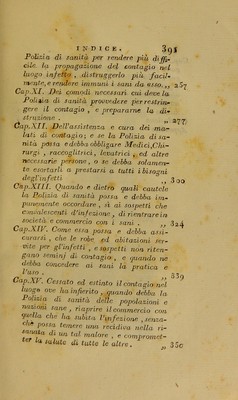 INDICE. 391
Polizia di sanità per rendere più diffi-
cile la propagazione del contagio nel
luogo infetto, distruggerlo più facil-
mente, e rendere immuni i sani da esso. ,, 257
Cap. XI. Dei comodi necessari cui deve la
Polizia di sanità provvedere per restrin-
gere il contagio, e prepararne la di-
struzione. ,, 277
Cap. XII. Dell'assistenza e cura dei ma-
lati di contagio; e se la Polizia di sa-
nità possa e debba obbligare Medici, Chi-
rurgi, raccoglitrici, levatrici, ed altre
necessarie persone, o se debba solamen-
te esortarli a prestarsi a tutti i bisogni
degl'infetti ,, 300
Cap. XIII. Quando e dietro quali cautele
la Polizia di sanità possa e debba im-
punemente accordare, sì ai sospetti che
convalescenti d'infezione, di rientrare in
società e commercio con i sani. ,, 324
Cap. XIV. Come essa possa e debba assi-
curarsi, che le robe ed abitazioni ser-
vite per gl'infetti, e sospetti non riten-
gano seminj di contagio, e quando ne
debba concedere ai sani la pratica e
l'uso. ,, 339
Cap. XV. Cessato ed estinto il contagio nel
luogo ove ha inferito, quando debba la
Polizia di sanità delle popolazioni e
nazioni sane, riaprire il commercio con
quella che ha subita l'infezione, senza-
chè possa temere una recidiva nella ri-
sanata di un tal malore, e compromet-
ter la salute di tutte le altre. ,, 350